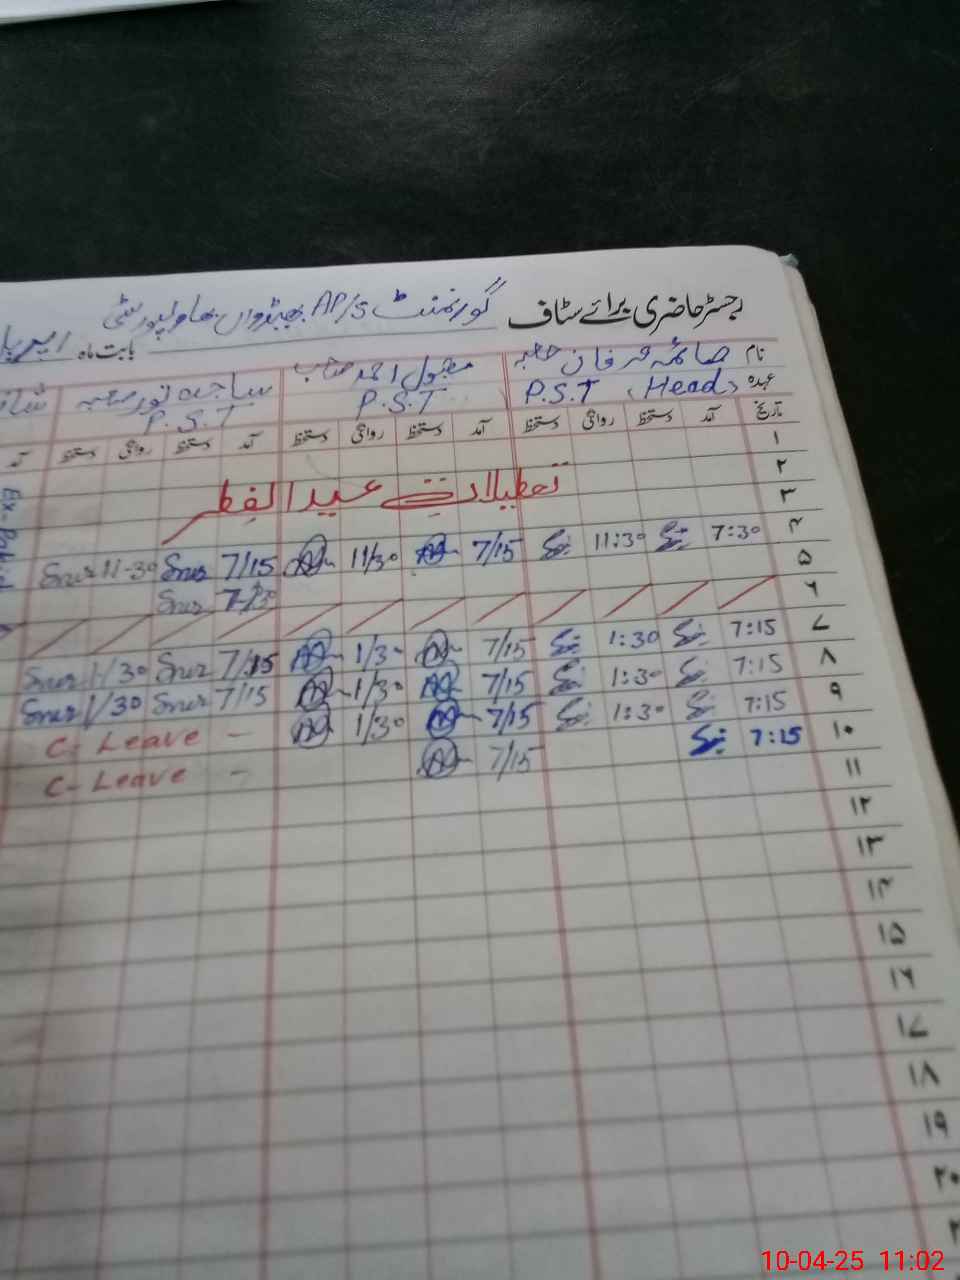 رجسٹر حاضری برائے سٹاف گورنمنٹ AP/S بھنڈواں بہاولپور سٹی
بابت ماہ
نام صائمہ عرفان صاحبہ مقبول احمد صاحب ساجدہ نور صاحبہ
عہدہ P.S.T (Head) P.S.T P.S.T
تاریخ آمد دستخط روانگی دستخط آمد دستخط روانگی دستخط آمد دستخط روانگی دستخط آمد
۱
۲
۳ تعطیلات عید الفطر
۴ 7:30 11:30 7/15 11/30 7/15 11-30
۵
۶
۷ 7:15 1:30 7/15 1/30 7/15 1/30
۸ 7:15 1:30 7/15 1/30 7/15 1/30
۹ 7:15 1:30 7/15 1/30 - C- Leave
۱۰ 7:15 7/15 - C- Leave
۱۱
۱۲
۱۳
۱۴
۱۵
۱۶
۱۷
۱۸
۱۹
۲۰
10-04-25 11:02